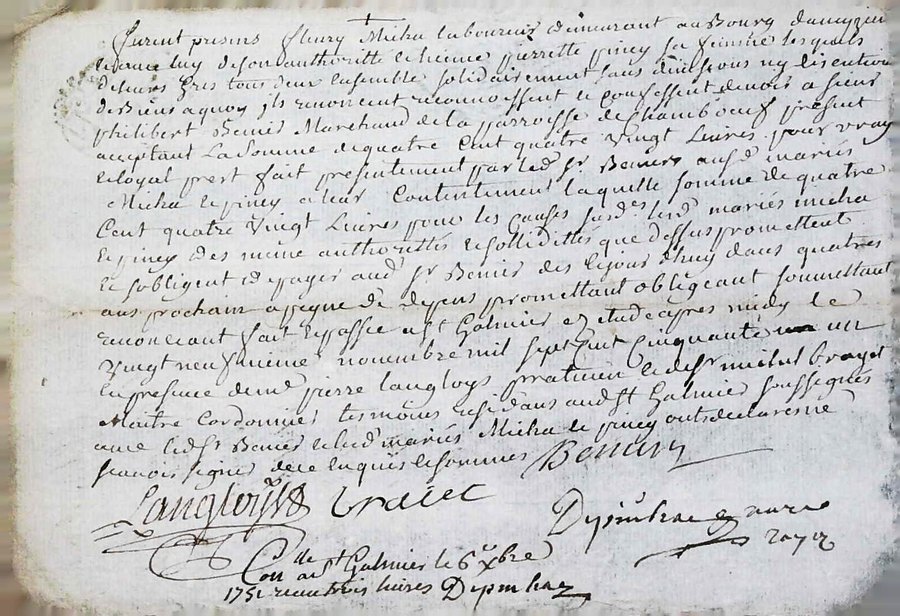 furent presens fleury Micha laboureur demeurant au Bourg
et de luy de son authoritté et hieme pierrette piney sa femme lesquels
tous deux ensemble solidairement sans division ny discution
de Biens a quoy ils renoncent reconnoissent et confessent devoir a sieur
philibert Benier Marchand de la parroisse de Chambœuf present
acceptant La somme de quatre Cent quatre Vingt Livres pour vray
et loyal prest fait presentement par led. Sr. Benier mariés
Micha et piney a leur Contentement laquelle somme de quatre
Cent quatre Vingt Livres pour les causes susd. lesd. mariés micha
et piney des meme authorittés et sollidittés que dessus promettent
et sobligent de payer aud. Sr. Benier des ce jourdhuy dans quatres
ans prochain a peyne de depens promettant obligeant soumettant
renonceant fait et passé a St. Galmier etude apres midy le
Vingt neufvieme novembre mil sept Cent Cinquante un
En presence de me. pierre Langloys praticien et de Sr. brayet
Maitre Cordonnier tesmoins residans aud. St. Galmier soussignés
avec led. Sr. Benier et lesd. mariés Micha et piney onts declares ne
scavoir signer de ce enquis et sommés Benier
Langloys braiet
Con. lle. a St. Galmier le 6e. Xbre
1751 reçeu trois livres